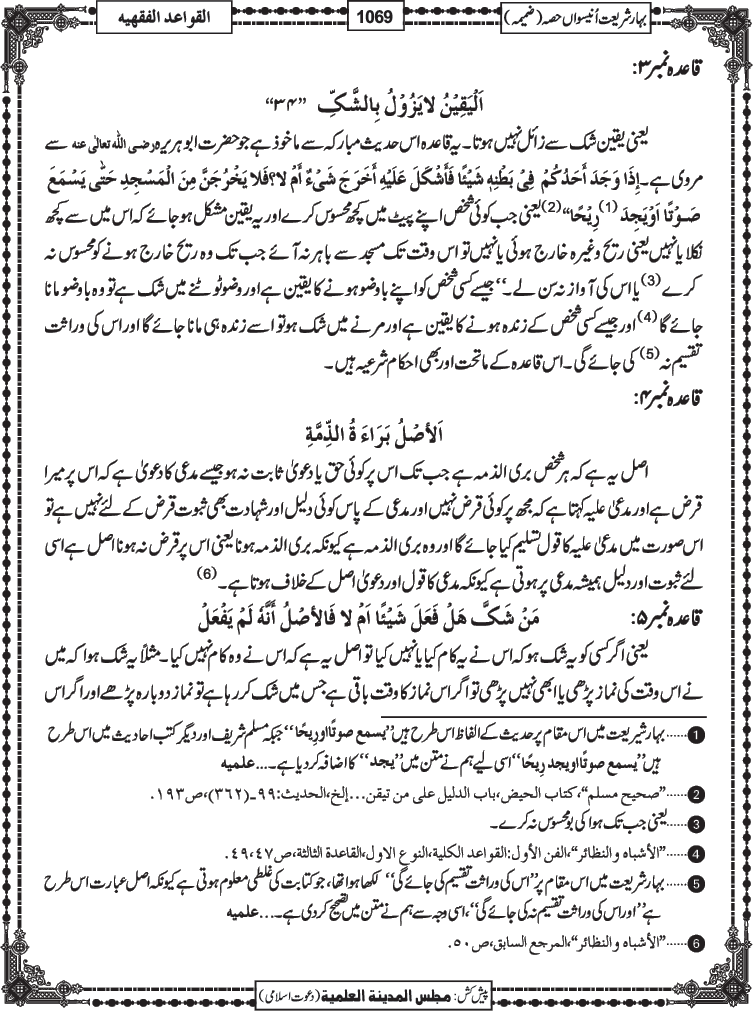 بہار شریعت اُنیسواں حصہ (ضمیمہ)
1069
القواعد الفقهيه
قاعدہ نمبر ۳:
اَلْيَقِيْنُ لَايَزُوْلُ بِالشَّكِّ "۳۴"
یعنی یقین شک سے زائل نہیں ہوتا۔ یہ قاعدہ اس حدیث مبارکہ سے ماخوذ ہے جو حضرت ابو ہریرہ رضی اللہ تعالٰی عنہ سے
مروی ہے۔ إِذَا وَجَدَ أَحَدُكُمْ فِيْ بَطْنِهِ شَيْئًا فَأَشْكَلَ عَلَيْهِ أَخَرَجَ شَيْءٌ أَمْ لَا؟ فَلَا يَخْرُجَنَّ مِنَ الْمَسْجِدِ حَتّٰى يَسْمَعَ
صَوْتًا اَوْيَجِدَ (1) رِيْحًا" (2) یعنی جب کوئی شخص اپنے پیٹ میں کچھ محسوس کرے اور یہ یقین مشکل ہو جائے کہ اس میں سے کچھ
نکلا یا نہیں یعنی ریح وغیرہ خارج ہوئی یا نہیں تو اس وقت تک مسجد سے باہر نہ آئے جب تک وہ ریح خارج ہونے کو محسوس نہ
کرے (3) یا اس کی آواز نہ سن لے۔" جیسے کسی شخص کو اپنے باوضو ہونے کا یقین ہے اور وضو ٹوٹنے میں شک ہے تو وہ باوضو مانا
جائے گا (4) اور جیسے کسی شخص کے زندہ ہونے کا یقین ہے اور مرنے میں شک ہو تو اسے زندہ ہی مانا جائے گا اور اس کی وراثت
تقسیم نہ (5) کی جائے گی۔ اس قاعدہ کے ماتحت اور بھی احکام شرعیہ ہیں۔
قاعدہ نمبر ۴:
اَلْأَصْلُ بَرَاءَةُ الذِّمَّةِ
اصل یہ ہے کہ ہر شخص بری الذمہ ہے جب تک اس پر کوئی حق یا دعویٰ ثابت نہ ہو جیسے مدعی کا دعویٰ ہے کہ اس پر میرا
قرض ہے اور مدعیٰ علیہ کہتا ہے کہ مجھ پر کوئی قرض نہیں اور مدعی کے پاس کوئی دلیل اور شہادت بھی ثبوت قرض کے لئے نہیں ہے تو
اس صورت میں مدعیٰ علیہ کا قول تسلیم کیا جائے گا اور وہ بری الذمہ ہے کیونکہ بری الذمہ ہونا یعنی اس پر قرض نہ ہونا اصل ہے اسی
لئے ثبوت اور دلیل ہمیشہ مدعی پر ہوتی ہے کیونکہ مدعی کا قول اور دعویٰ اصل کے خلاف ہوتا ہے۔ (6)
قاعدہ نمبر ۵: مَنْ شَكَّ هَلْ فَعَلَ شَيْئًا اَمْ لَا فَالْأَصْلُ أَنَّهُ لَمْ يَفْعَلْ
یعنی اگر کسی کو یہ شک ہو کہ اس نے یہ کام کیا یا نہیں کیا تو اصل یہ ہے کہ اس نے وہ کام نہیں کیا۔ مثلاً یہ شک ہوا کہ میں
نے اس وقت کی نماز پڑھی یا ابھی نہیں پڑھی تو اگر اس نماز کا وقت باقی ہے جس میں شک کر رہا ہے تو نماز دوبارہ پڑھے اور اگر اس
1 ...... بہار شریعت میں اس مقام پر حدیث کے الفاظ اس طرح ہیں "يسمع صوتًا اوريحًا" جبکہ مسلم شریف اور دیگر کتب احادیث میں اس طرح
ہیں "يسمع صوتًا اويجد ريحًا" اسی لیے ہم نے متن میں "يجد" کا اضافہ کر دیا ہے۔... علمیہ
2 ...... "صحيح مسلم"، كتاب الحيض، باب الدليل على من تيقن...إلخ، الحديث: ۹۹-(۳۶۲)، ص۱۹۳.
3 ...... یعنی جب تک ہوا کی بو محسوس نہ کرے۔
4 ...... "الأشباه و النظائر"، الفن الأول: القواعد الكلية، النوع الاول، القاعدة الثالثة، ص۴۷، ۴۹.
5 ...... بہار شریعت میں اس مقام پر "اس کی وراثت تقسیم کی جائے گی" لکھا ہوا تھا، جو کتابت کی غلطی معلوم ہوتی ہے کیونکہ اصل عبارت اس طرح
ہے "اور اس کی وراثت تقسیم نہ کی جائے گی"، اسی وجہ سے ہم نے متن میں تصحیح کر دی ہے۔... علمیہ
6 ...... "الأشباه و النظائر"، المرجع السابق، ص۵۰.
پیش کش: مجلس المدينة العلمية (دعوت اسلامی)